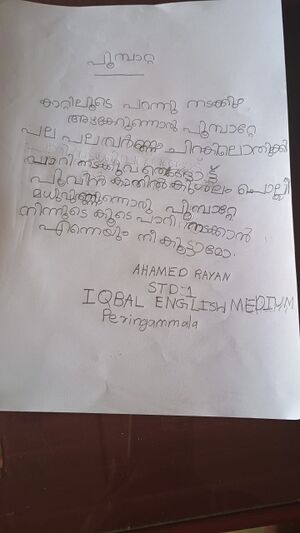 പൂമ്പാറ്റ
കാറ്റിലൂടെ പറന്നു നടക്കും
അഴകേറുന്നൊരു പൂമ്പാറ്റേ
പല പല വർണ്ണ ചിറകിലൊതുക്കി
പാറി നടക്കുവ തെങ്ങോട്ട്
പൂവിൻ കാതിൽ കുശലം ചൊല്ലി
മധുവുണ്ണുന്നൊരു പൂമ്പാറ്റേ
നിന്നുടെ കൂടെ പാറി നടക്കാൻ
എന്നെയും നീ കൂട്ടാമോ.
AHAMED RAYAN
STD:1
IQBAL ENGLISH MEDIUM
Peringammala